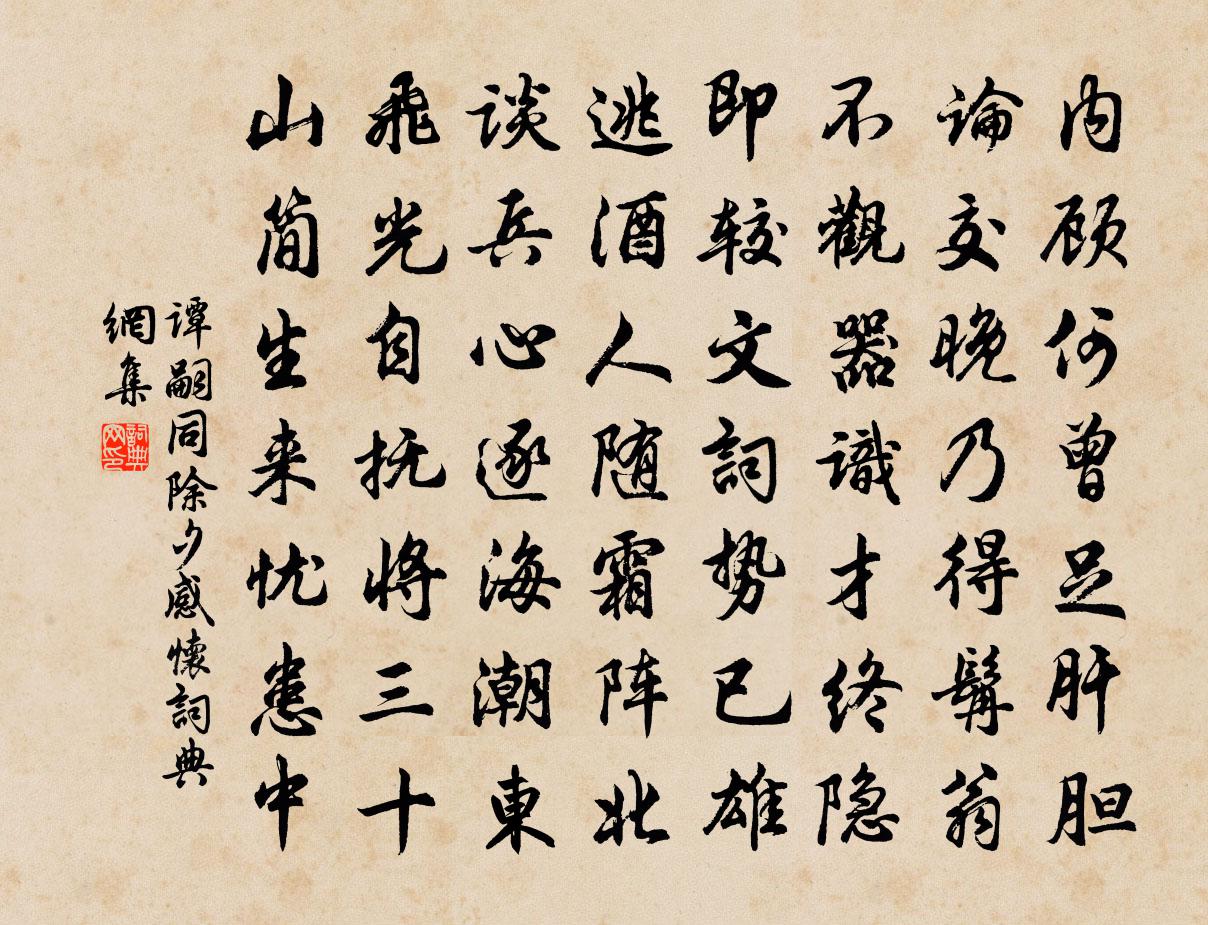 内顾何曾足肝胆
論交晚乃得髯翁
不觀器識才终隐
即较文詞势已雄
逃酒人随霜阵北
谈兵心逐海潮東
飛光自抚将三十
山简生来忧患中
谭嗣同除夕感懷詞典
網集
詞典
网印